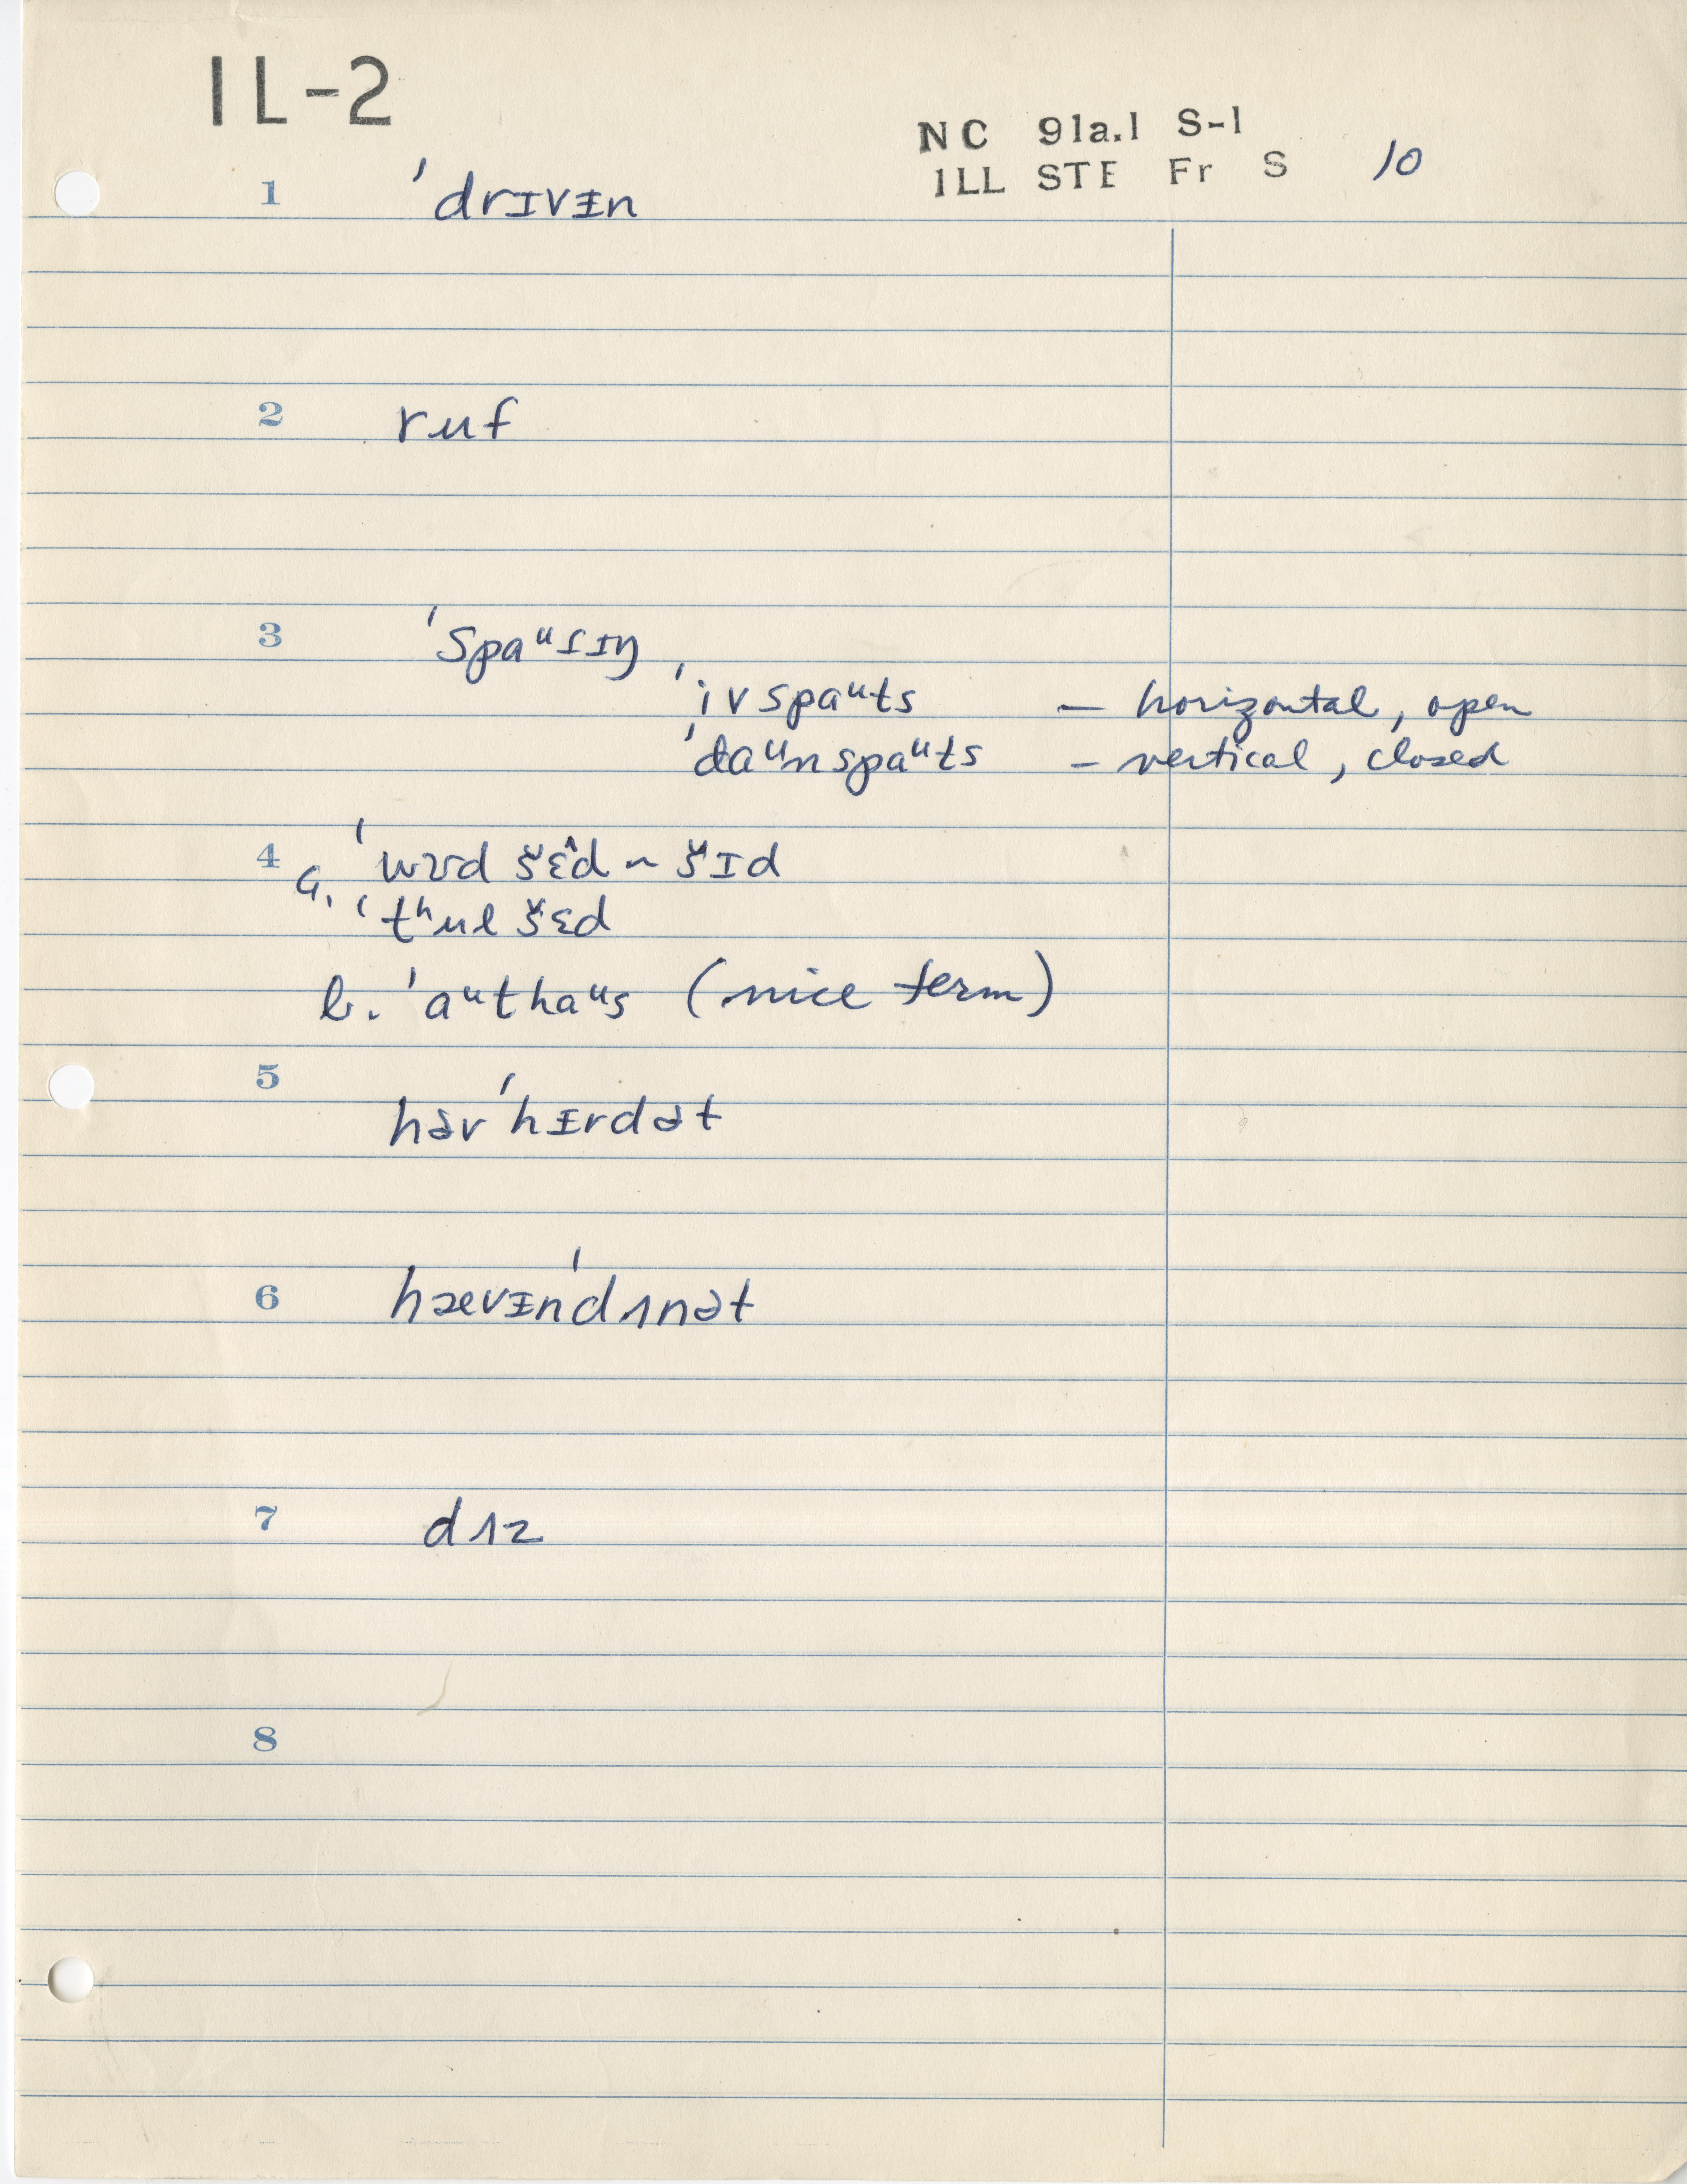 IL-2
NC 91a.1 S-1
ILL STE Fr S 10
1 ˈdrɪvɪ̵n
2 ruf
3 ˈspaᵘɾɪŋ
ˈivspaᵘts — horizontal, open
ˈdaᵘnspaᵘts – vertical, closed
4 a. ˈwʊd šɛ̂d ~ šɪd
ˈtʰul šɛd
b. ˈaᵘthaᵘs (nice term)
5 həvˈhɪ̵rdət
6 hævɪ̵nˈdʌnət
7 dʌz
8